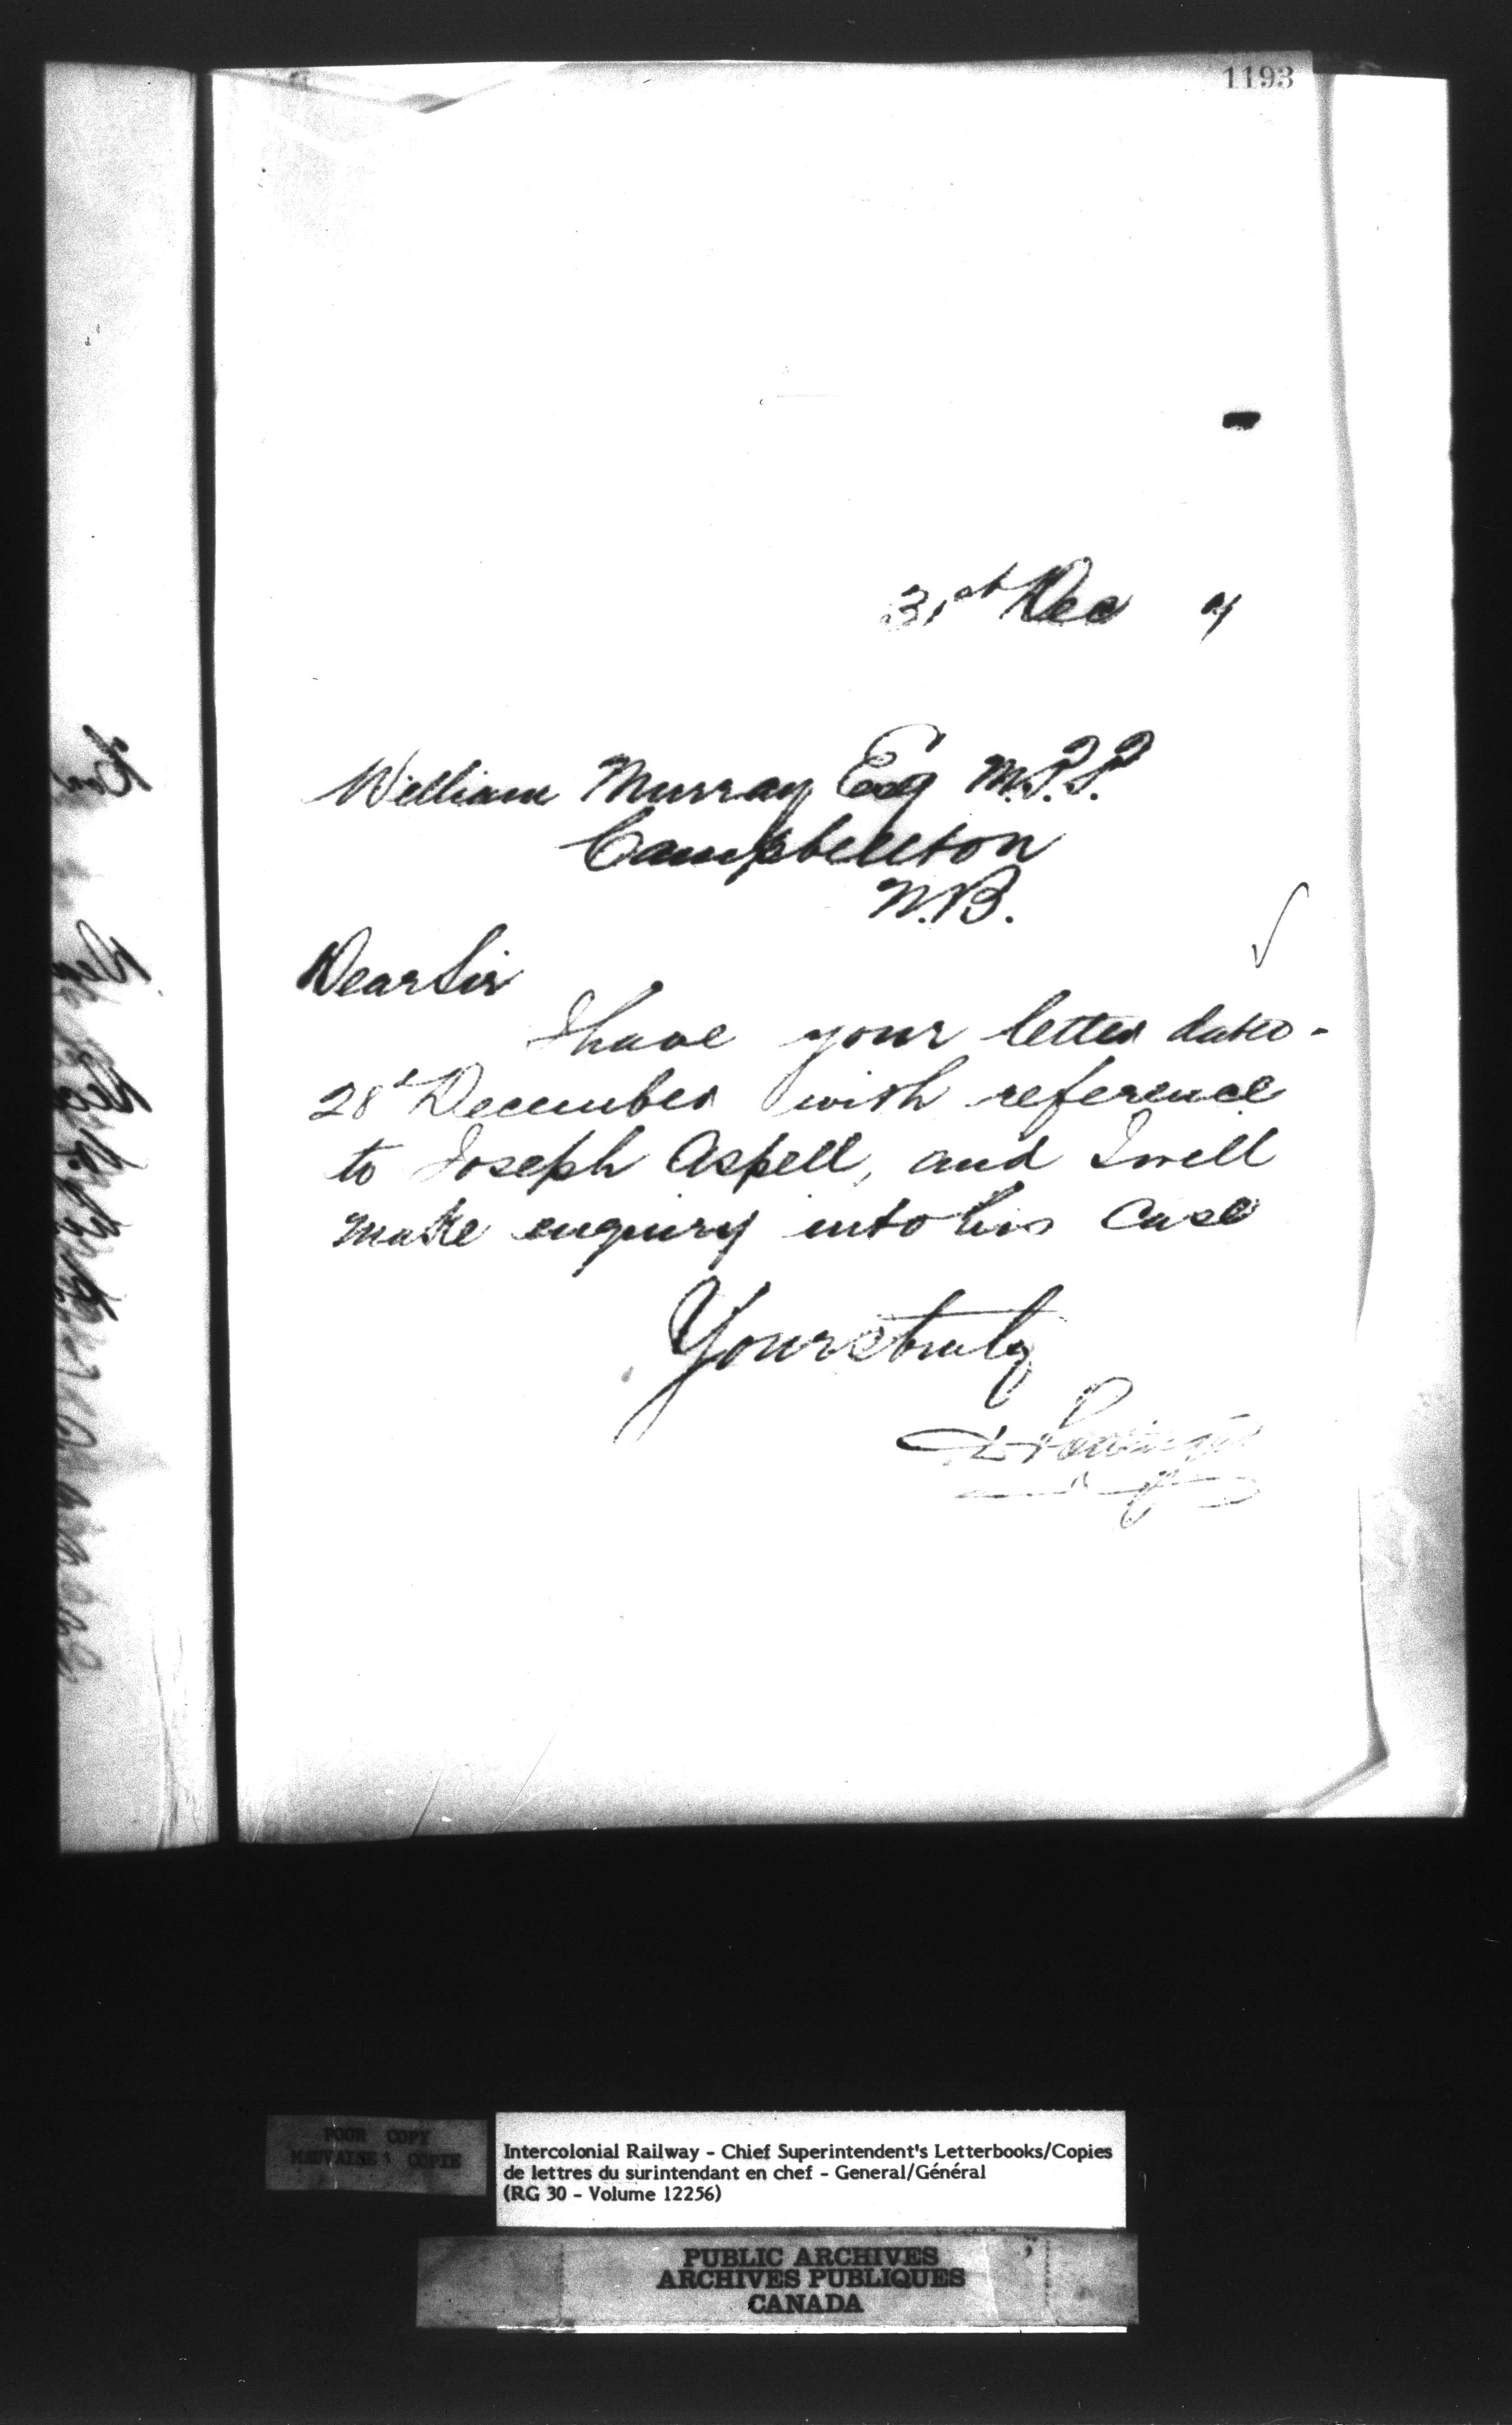 1193
31st Dec
William Murray Esq M.P.P.
Campbellton
N.B.
Dear Sir
I have your letter dated
28th December with reference
to Joseph Aspell, and I will
make enquiry into his case
Yours truly
D Pottinger
POOR COPY
MAUVAISE COPIE
Intercolonial Railway - Chief Superintendent's Letterbooks/Copies
de lettres du surintendant en chef - General/Général
(RG 30 - Volume 12256)
PUBLIC ARCHIVES
ARCHIVES PUBLIQUES
CANADA